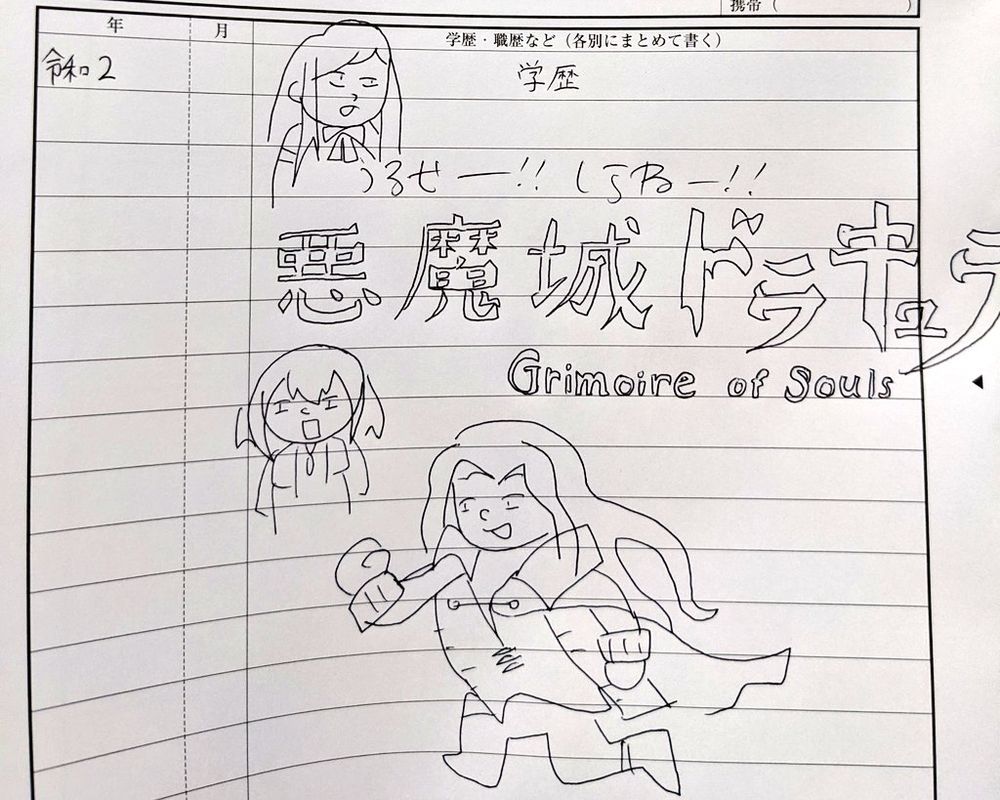 携帯（　　　）
年 月 学歴・職歴など（各別にまとめて書く）
令和2 学歴
うるせー!! しらねー!!
悪魔城ドラキュラ
Grimoire of Souls